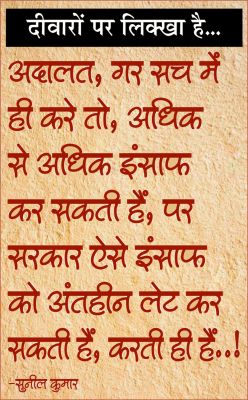 दीवारों पर लिक्खा है...
अदालत, गर सच में
ही करे तो, अधिक
से अधिक इंसाफ
कर सकती हैं, पर
सरकार ऐसे इंसाफ
को अंतहीन लेट कर
सकती हैं, करती ही हैं..!
-सुनील कुमार